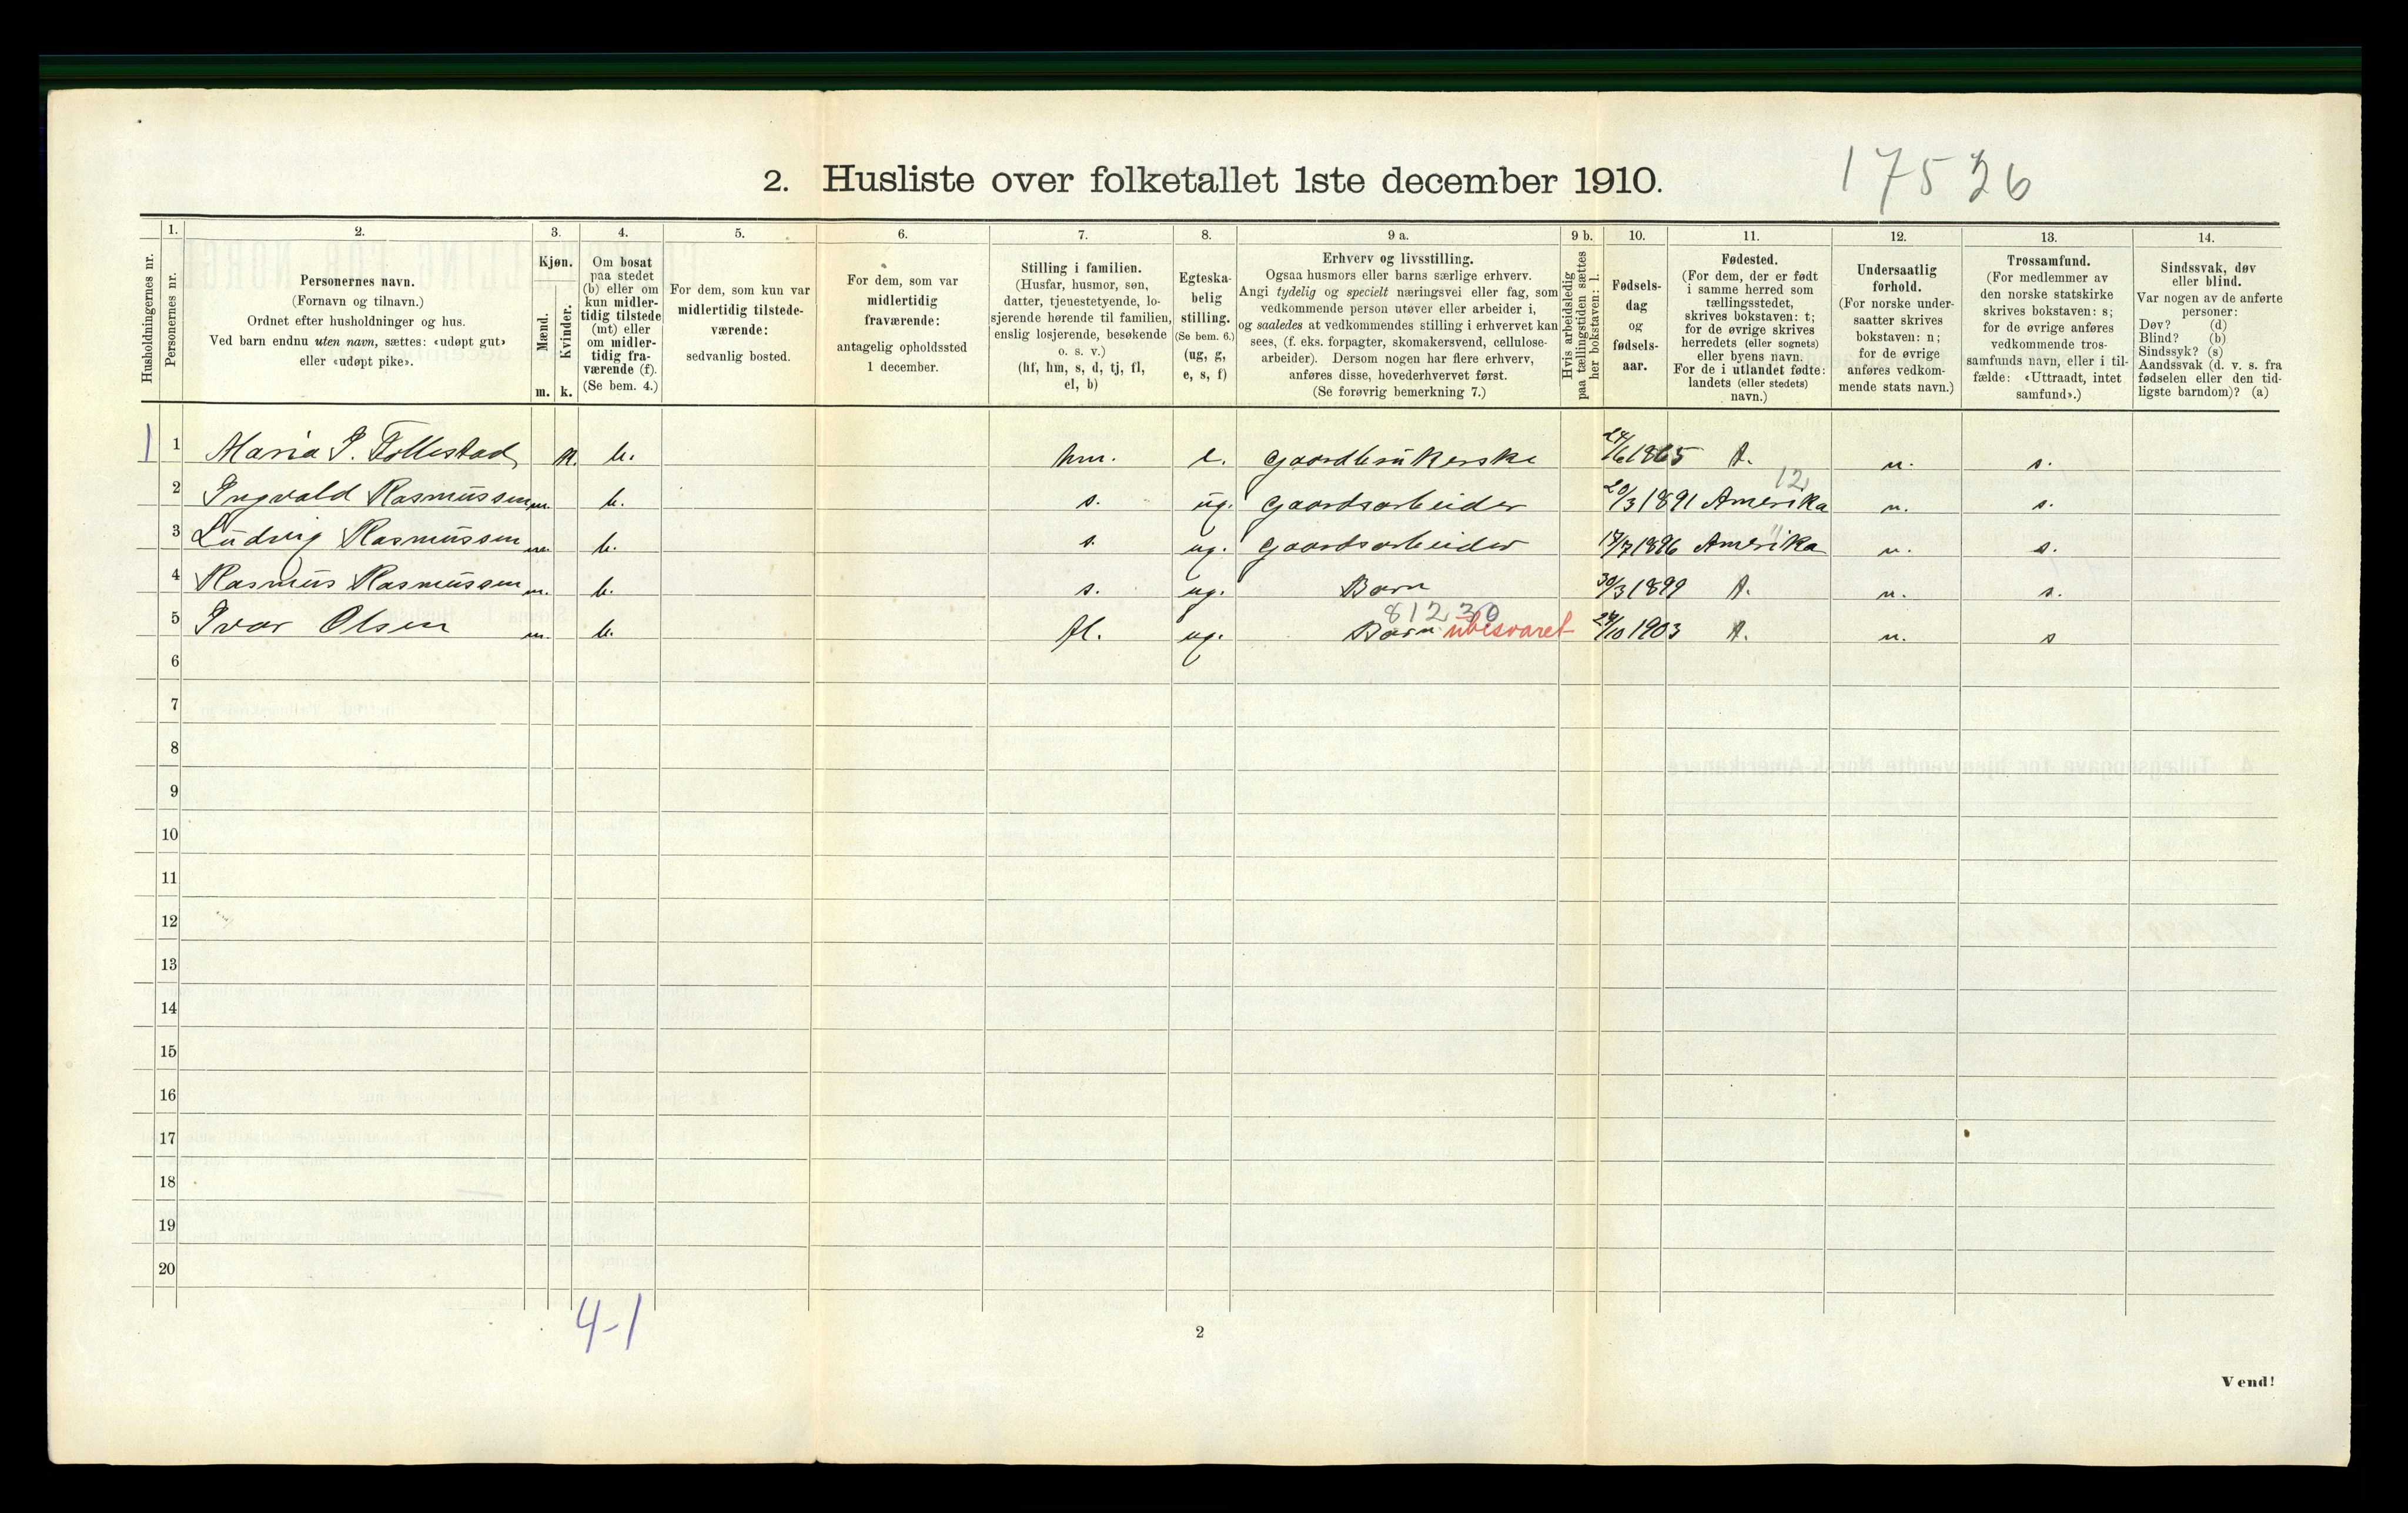 2. Husliste over folketallet 1ste december 1910.
17526
Husholdningernes nr.
1.
Personernes nr.
2.
Personernes navn.
(Fornavn og tilnavn.)
Ordnet efter husholdninger og hus.
Ved barn endnu uten navn, sættes: «udøpt gut»
eller «udøpt pike».
3.
Kjøn.
Mænd.
m.
Kvinder.
k.
4.
Om bosat
paa stedet
(b) eller om
kun midler-
tidig tilstede
(mt) eller
om midler-
tidig fra-
værende (f).
(Se bem. 4.)
5.
For dem, som kun var
midlertidig tilstede-
værende:
sedvanlig bosted.
6.
For dem, som var
midlertidig
fraværende:
antagelig opholdssted
1 december.
7.
Stilling i familien.
(Husfar, husmor, søn,
datter, tjenestetyende, lo-
sjerende hørende til familien,
enslig losjerende, besøkende
o. s. v.)
(hf, hm, s, d, tj, fl,
el, b)
8.
Egteska-
belig
stilling.
(Se bem. 6.)
(ug, g,
e, s, f)
9 a.
Erhverv og livsstilling.
Ogsaa husmors eller barns særlige erhverv.
Angi tydelig og specielt næringsvei eller fag, som
vedkommende person utøver eller arbeider i,
og saaledes at vedkommendes stilling i erhvervet kan
sees, (f. eks. forpagter, skomakersvend, cellulose-
arbeider). Dersom nogen har flere erhverv,
anføres disse, hovederhvervet først.
(Se forøvrig bemerkning 7.)
9 b.
Hvis arbeidsledig
paa tællingstiden sættes
her bokstaven: l.
10.
Fødsels-
dag
og
fødsels-
aar.
11.
Fødested.
(For dem, der er født
i samme herred som
tællingsstedet,
skrives bokstaven: t;
for de øvrige skrives
herredets (eller sognets)
eller byens navn.
For de i utlandet fødte:
landets (eller stedets)
navn.)
12.
Undersaatlig
forhold.
(For norske under-
saatter skrives
bokstaven: n;
for de øvrige
anføres vedkom-
mende stats navn.)
13.
Trossamfund.
(For medlemmer av
den norske statskirke
skrives bokstaven: s;
for de øvrige anføres
vedkommende tros-
samfunds navn, eller i til-
fælde: «Uttraadt, intet
samfund».)
14.
Sindssvak, døv
eller blind.
Var nogen av de anførte
personer:
Døv? (d)
Blind? (b)
Sindssyk? (s)
Aandssvak (d. v. s. fra
fødselen eller den tid-
ligste barndom)? (a)
1 1 Maria P. Follestad k. b. hm. e. gaardbrukerske 24/6 1865 t. n. s.
12
2 Ingvald Rasmussen m. b. s. ug. gaardsarbeider 20/3 1891 Amerika n. s.
3 Ludvig Rasmussen m. b. s. ug. gaardsarbeider 17/7 1896 Amerika n. s.
4 Rasmus Rasmussen m. b. s. ug. Barn 30/3 1899 t. n. s.
81230
5 Ivar Olsen m. b. fl. ug. Barn ubesvaret 24/10 1903 t. n. s
6
7
8
9
10
11
12
13
14
15
16
17
18
19
20
4-1
2
Vend!